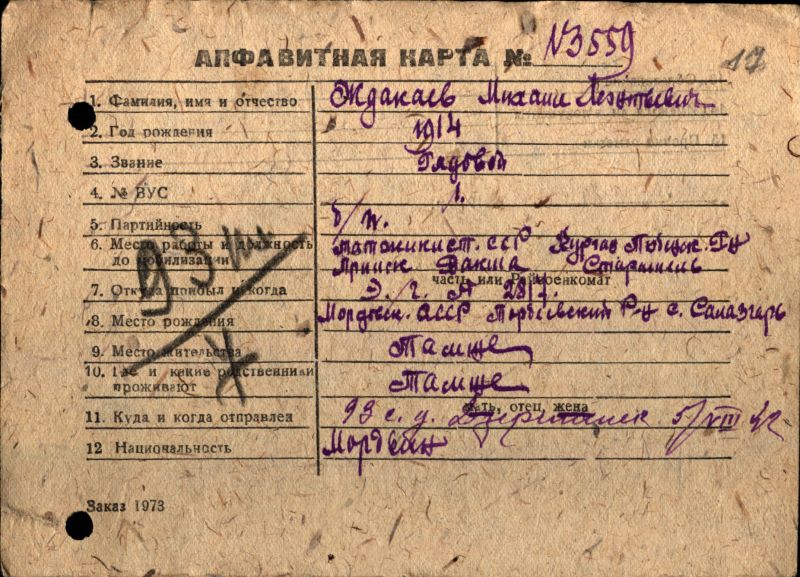 АЛФАВИТНАЯ КАРТА № N3559
17
1. Фамилия, имя и отчество Ждакаев Михаил Леонтьевич
2. Год рождения 1914
3. Звание Рядовой
4. № ВУС 1.
5. Партийность б/п.
6. Место работы и должность до мобилизации
прииск Дакша Старатель
часть или Райвоенкомат
7. Откуда прибыл и когда Э./г. №
8. Место рождения Мордовск. АССР Торбеевский Р-н с. Салазгарь
9. Место жительства Тамже
10. Где и какие родственники проживают Тамже
мать, отец, жена
11. Куда и когда отправлен 93 с. д. 5/VIII 42
12 Национальность Мордвин
Заказ 1973